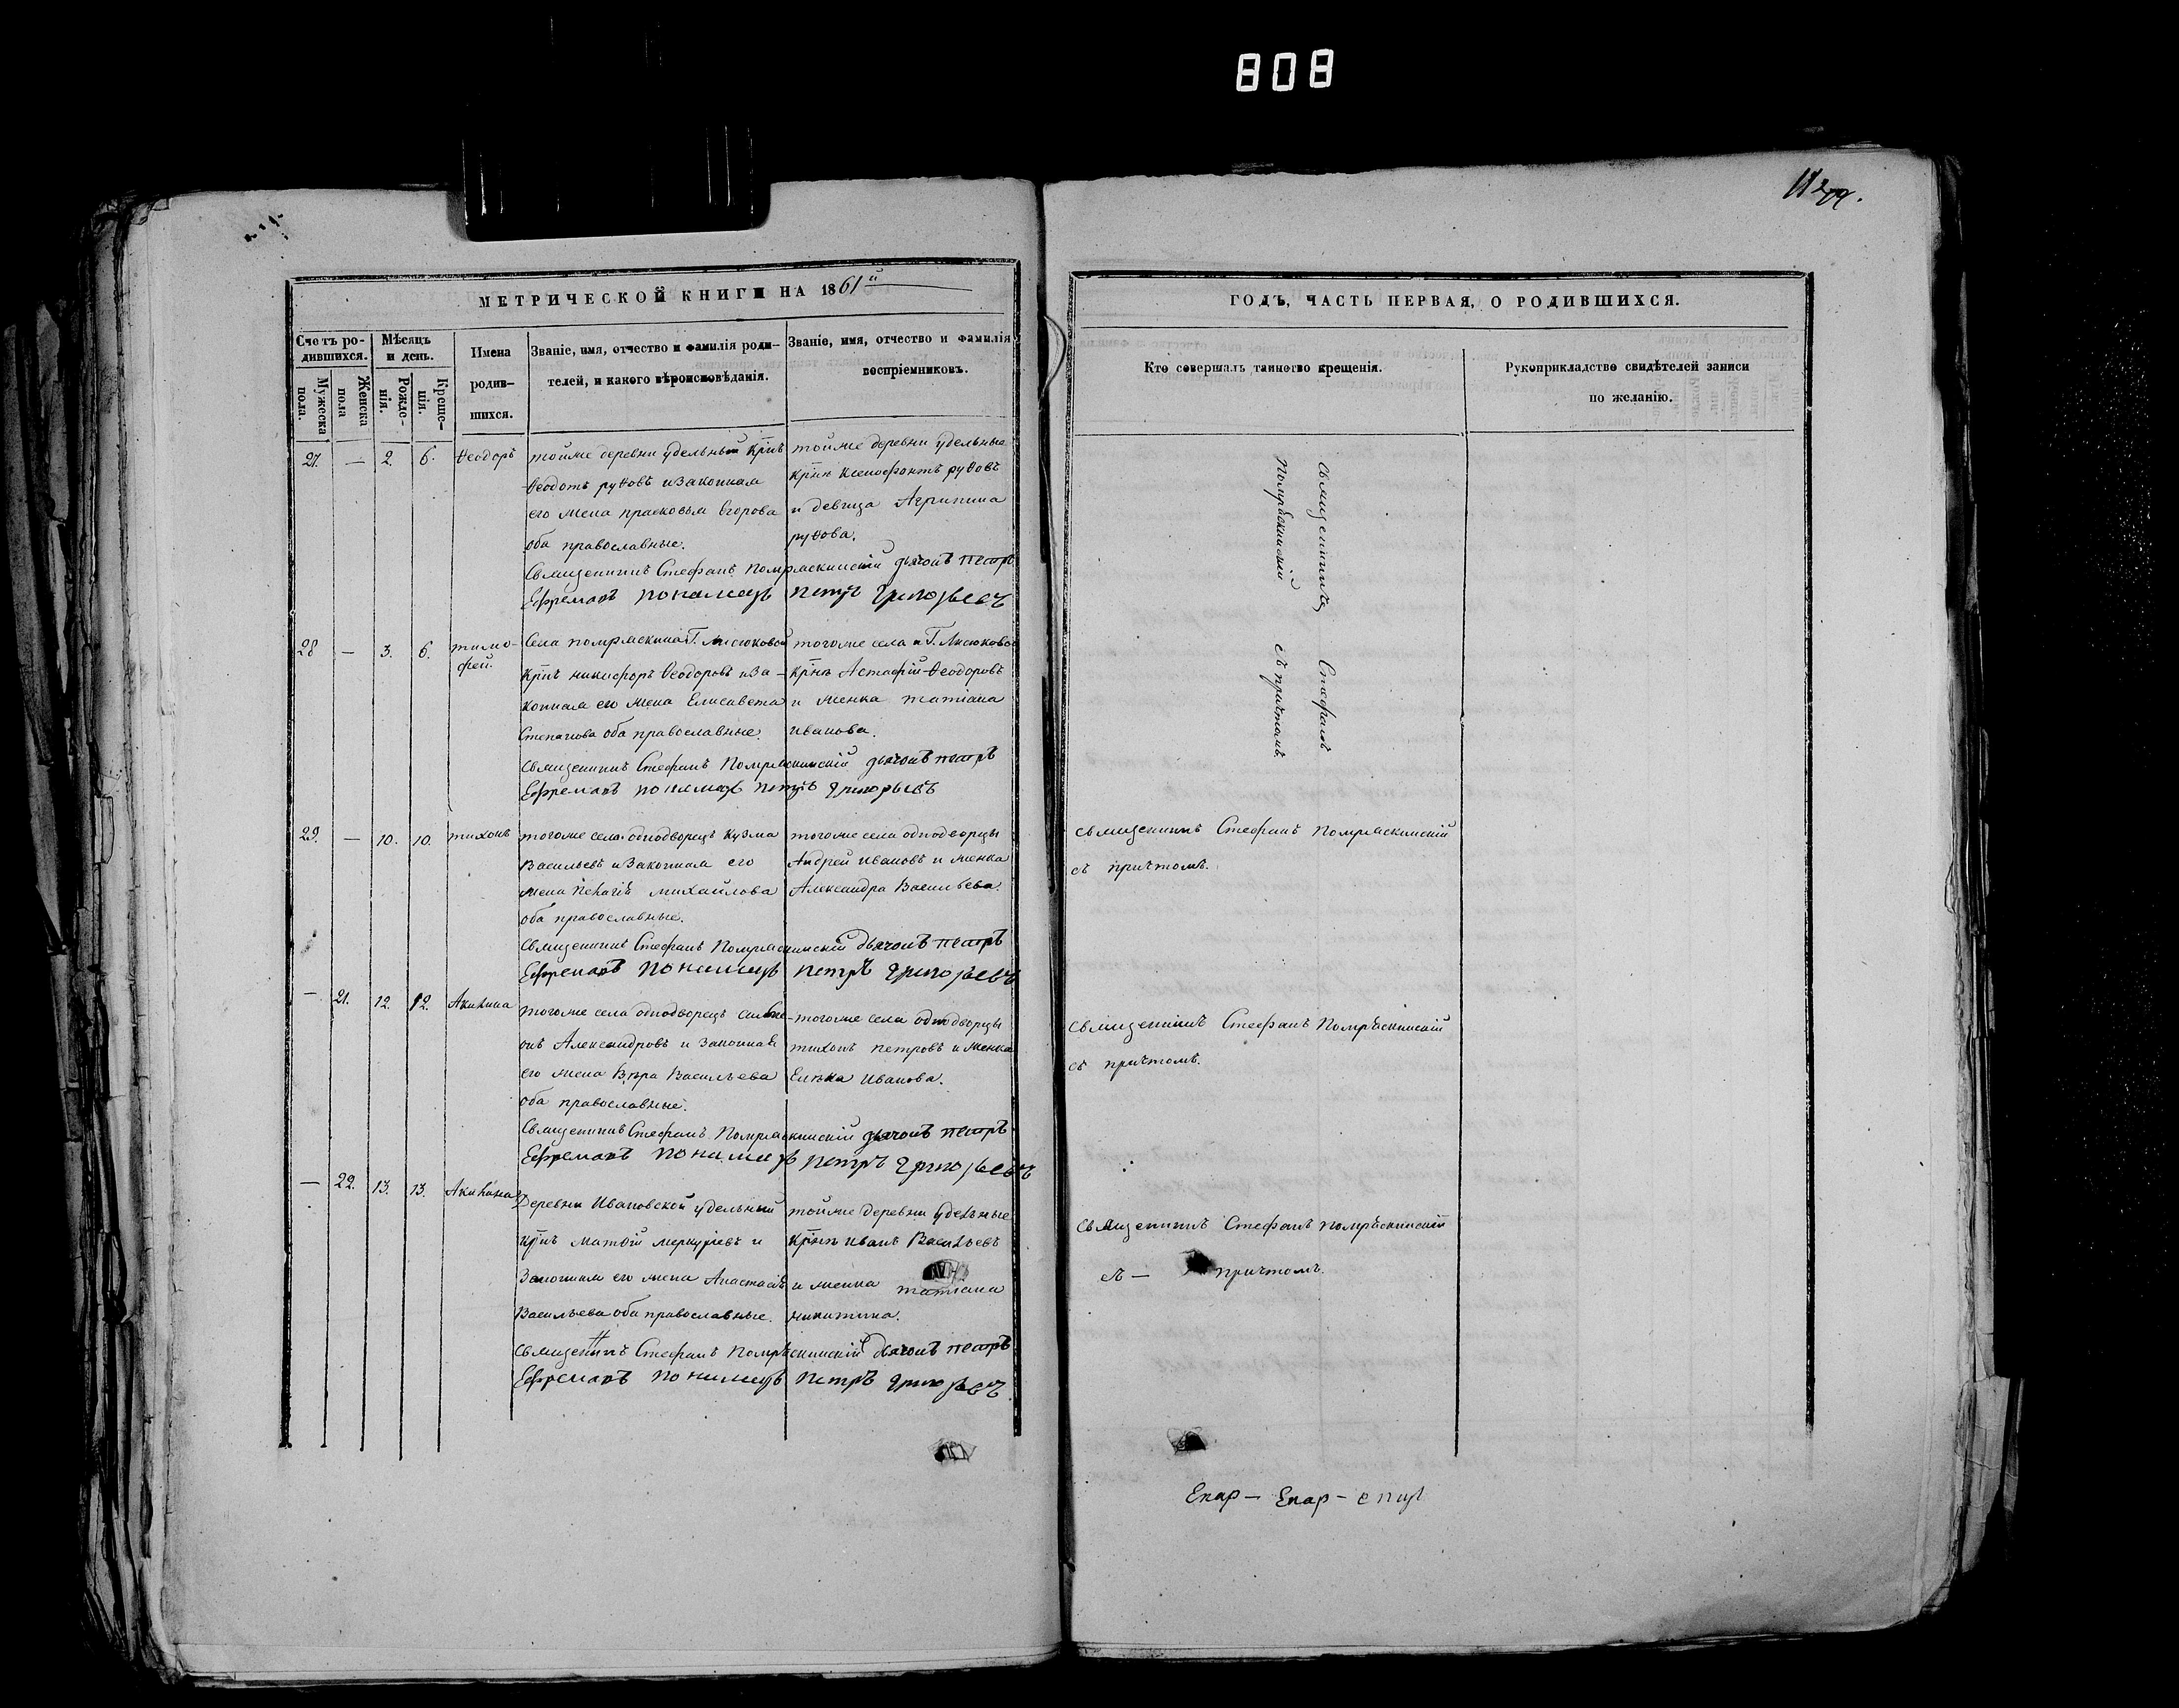 808
МЕТРИЧЕСКОЙ КНИГИ НА 1861й
Счетъ родившихся.
Мужеска пола.
Женска пола
Мѣсяцъ и день.
Рожденія.
Крещенія.
Имена родившихся.
Званіе, имя, отчество и фамилія родителей, и какого вѣроисповѣданія.
Званіе, имя, отчество и фамилія воспріемниковъ.
27. — 2. 6. Ѳеодоръ
тойже деревни удельный крнъ
Ѳеодотъ руѳовъ и Законная
его жена прасковья Егорова
оба православные.
тойже деревни удельные
крне Ксенофонтъ руѳовъ
и девица Агрипина
руѳова.
Священникъ Стефанъ Помряскинскій дьячокъ петръ
Ефремовъ пономарь петръ григорьевъ
28 — 3. 6. тимо-
фей.
Села помряскина Г. Лисюковой
крнъ никифоръ Ѳеодоровъ и За-
конная его жена Елисавета
Степанова оба православные.
тогоже села и Г. Лисюковой
крне Астафій Ѳеодоровъ
и женка татіана
иванова.
Священникъ Стефанъ Помряскинскій дьячокъ петръ
Ефремовъ пономарь петръ григорьевъ
29. — 10. 10. тихонъ
тогоже села однодворецъ Кузма
Васильевъ и Законная его
жена михайлова
оба православные.
тогоже села однодворцы
Андрей ивановъ и женка
Александра Васильева.
Священникъ Стефанъ Помряскинскій дьячокъ петръ
Ефремовъ пономарь петръ григорьевъ
— 21. 12. 12. Акилина
тогоже села однодворецъ симе-
онъ Александровъ и Законная
его жена Вѣра Васильева
оба православные.
тогоже села однодворцы
тихонъ петровъ и женка
иванова.
Священникъ Стефанъ Помряскинскій дьячокъ петръ
Ефремовъ пономарь петръ григорьевъ
— 22. 13. 13. Акилина
Деревни Ивановской удельный
крнъ матѳій меркуріевъ и
Законная его жена Анастасія
Васильева оба православные.
тойже деревни удельные
крне иванъ Васильевъ
и женка татіана
никитина.
Священникъ Стефанъ Помряскинскій дьячокъ петръ
Ефремовъ пономарь петръ григорьевъ
ГОДЪ, ЧАСТЬ ПЕРВАЯ, О РОДИВШИХСЯ.
Кто совершалъ таинство крещенія.
Рукоприкладство свидѣтелей записи
по желанію.
Священникъ Стефанъ
Помряскинскій съ причтомъ.
Священникъ Стефанъ Помряскинскій
съ причтомъ.
Священникъ Стефанъ Помряскинскій
съ причтомъ.
Священникъ Стефанъ помряскинскій
съ — причтомъ.
Епар — Епар —